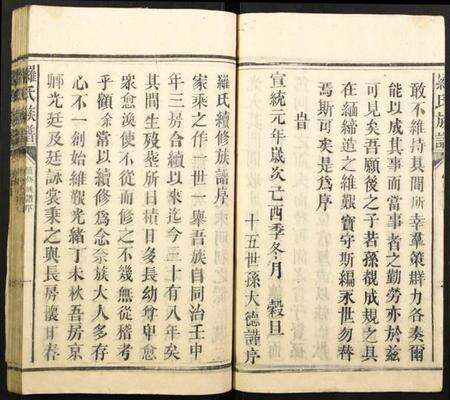 羅氏族譜
敢不維持其間所幸羣策群力各奏爾
能以成其事而當事者之勤勞亦於茲
可見矣吾願後之子若孫覩成規之具
在緬締造之維艱寶守斯編永世勿替
焉斯可矣是爲序
旹
宣統元年歲次己酉季冬月 穀旦
十五世孫大德謹序
羅氏續修族譜序
家乘之作一世一舉吾族自同治壬申
年三房合續以來迄今三十有八年矣
其間生歿塟所日積日多長幼尊卑愈
衆愈渙使不從而修之不幾無從稽考
乎顧余當以續修爲念奈族大人多存
心不一創始維艱光緒丁未秋吾房京
卿光廷及廷詠裳秉之與長房讓廿春
羅氏族譜